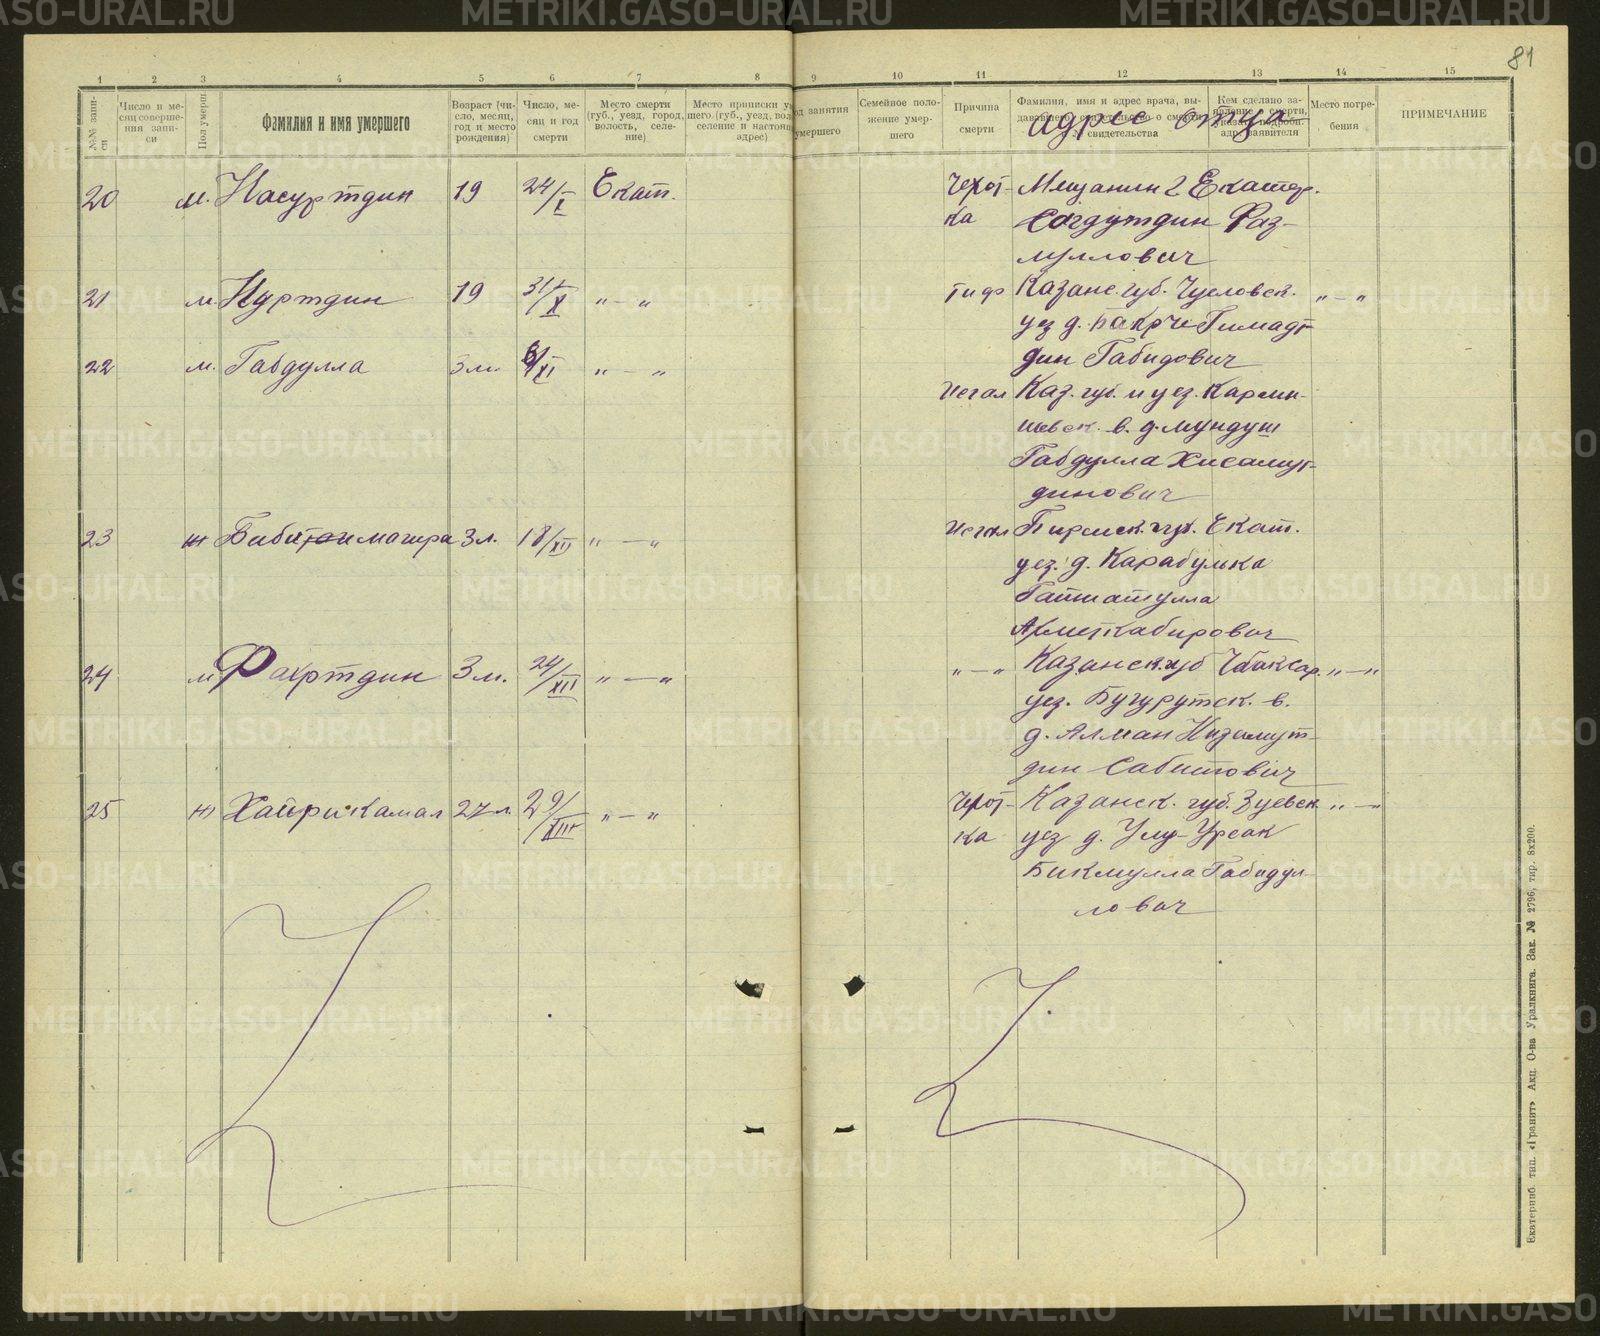 81
1 2 3 4 5 6 7 8 9 10 11 12 13 14 15
№№ запи-
си
Число и ме-
сяц соверше-
ния запи-
си
Пол умерш
Фамилия и имя умершего
Возраст (чи-
сло, месяц,
год и место
рождения)
Число, ме-
сяц и год
смерти
Место смерти
(губ., уезд, город,
волость, селе-
ние)
Место приписки у
шего (губ., уезд, вол
селение и настоящ
адрес)
од занятия
умершего
Семейное поло-
жение умер-
шего
Причина
смерти
Фамилия, имя и адрес врача, вы-
свидетельства
Кем сделано за-
явление о смерти,
адр. заявителя
Место погре-
бения
ПРИМЕЧАНИЕ
Адрес отца
20 м. Насуртдин 19 24/X Екат. Чехот- Мещанин г Екатер.
ка Согдутдин Фаз-
муллович
21 м Нуртдин 19 31/X „ — „ тиф Казанс. губ. „ — „
уез д. Бакрче Гимадт-
дин Габидович
22 м. Габдулла 3 м. 6/XI „ — „
Каз. губ. и уез.
в. д. мундуш
Габдулла Хисамут-
динович
23 ж 3 л. 18/XII „ — „ Екат.
уез. д. Карабулька
Ахметкабирович
24 м Фахртдин 3 м. 24/XII „ — „ „ — „ Казанск. губ Чбаксар. „ — „
уез. в.
д. Алман Низамут-
дин Сабитович
25 ж Хайрикамал 27 л. 29/XII „ — „ Чехот- Казанск. губ. Зуевск. „ — „
ка уез д. Улу-Урсак
Бикмулла Габидул-
лович
Екатеринб. тип. «Гранит» Акц. О-ва Уралкнига. Зак. № 2796, тир. 8х200.
METRIKI.GASO-URAL.RU